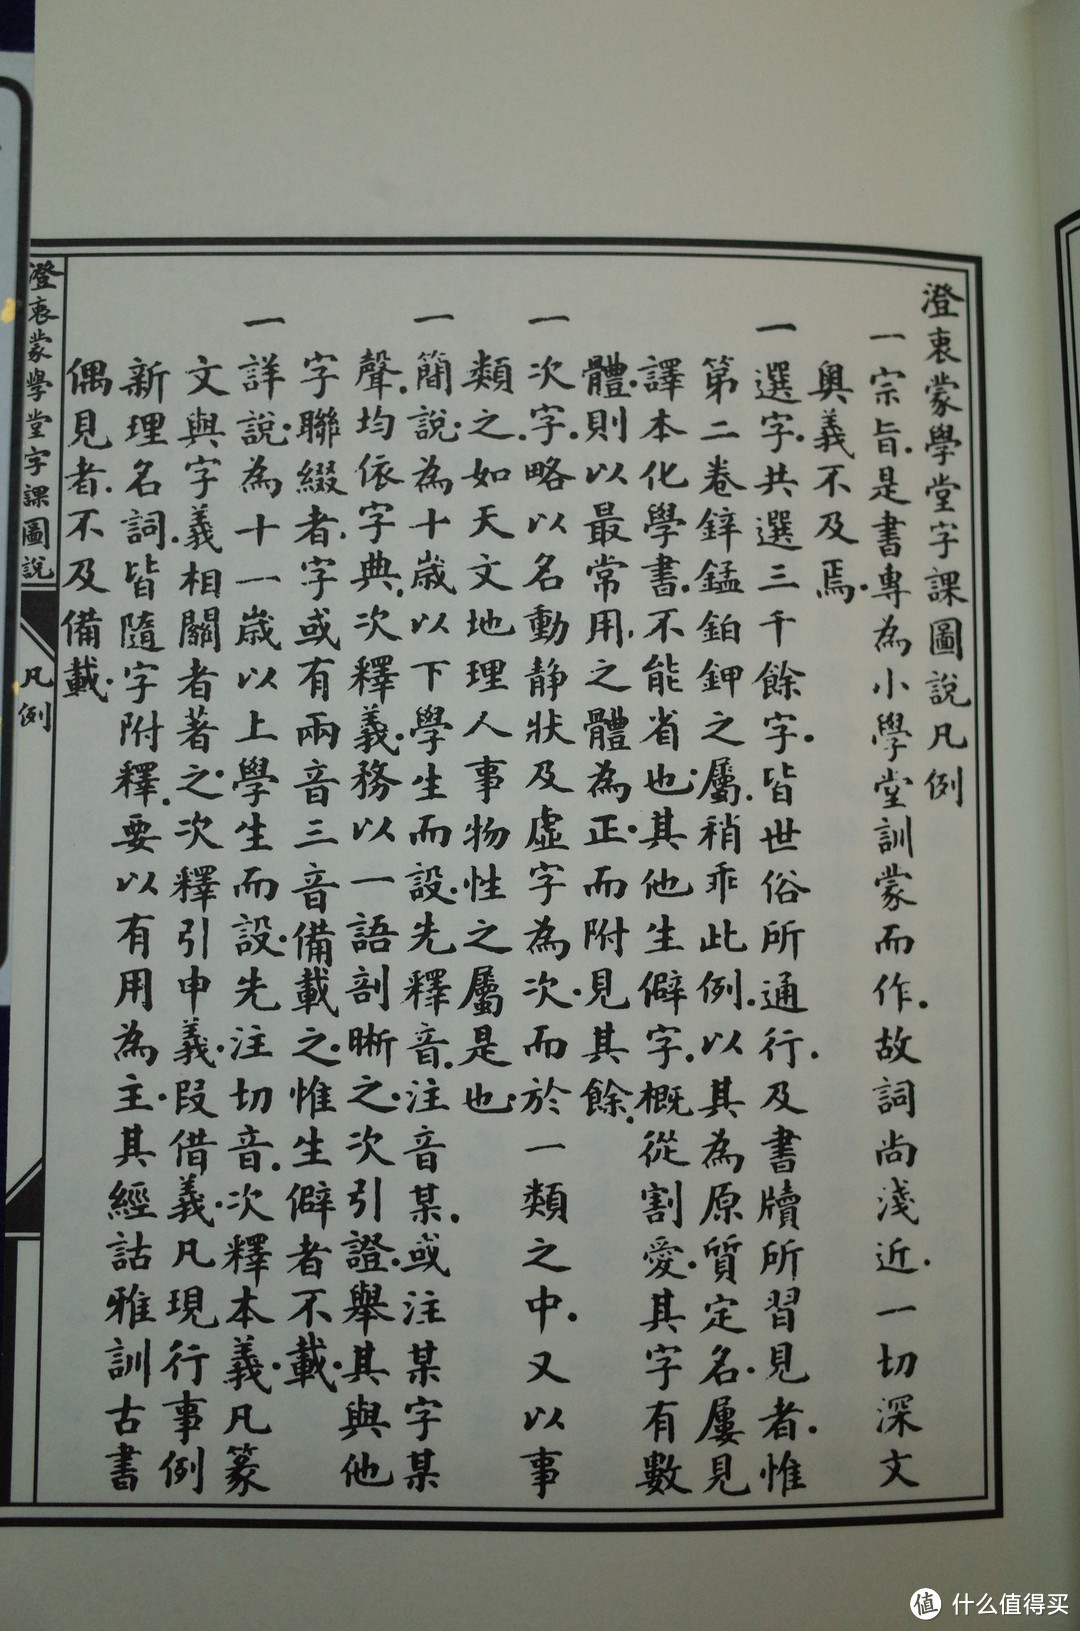 澄衷蒙學堂字課圖說凡例
一宗旨.是書專為小學堂訓蒙而作.故詞尚淺近.一切深文
奧義不及焉.
一選字.共選三千餘字.皆世俗所通行.及書牘所習見者.惟
第二卷鋅錳鉑鉀之屬.稍乖此例.以其為原質定名.屢見
譯本化學書.不能省也.其他生僻字.概從割愛.其字有數
體.則以最常用之體為正.而附見其餘.
一次字.略以名動靜狀及虛字為次.而於一類之中.又以事
類之.如天文地理人事物性之屬是也.
一簡說.為十歲以下學生而設.先釋音.注音某.或注某字某
聲.均依字典.次釋義.務以一語剖晰之.次引證.舉其與他
字聯綴者.字或有兩音三音備載之.惟生僻者不載.
一詳說.為十一歲以上學生而設.先注切音.次釋本義.凡篆
文與字義相關者著之.次釋引申義.叚借義.凡現行事例
新理名詞.皆隨字附釋.要以有用為主.其經詁雅訓古書
偶見者.不及備載.
澄衷蒙學堂字課圖說
凡例
值 什么值得买